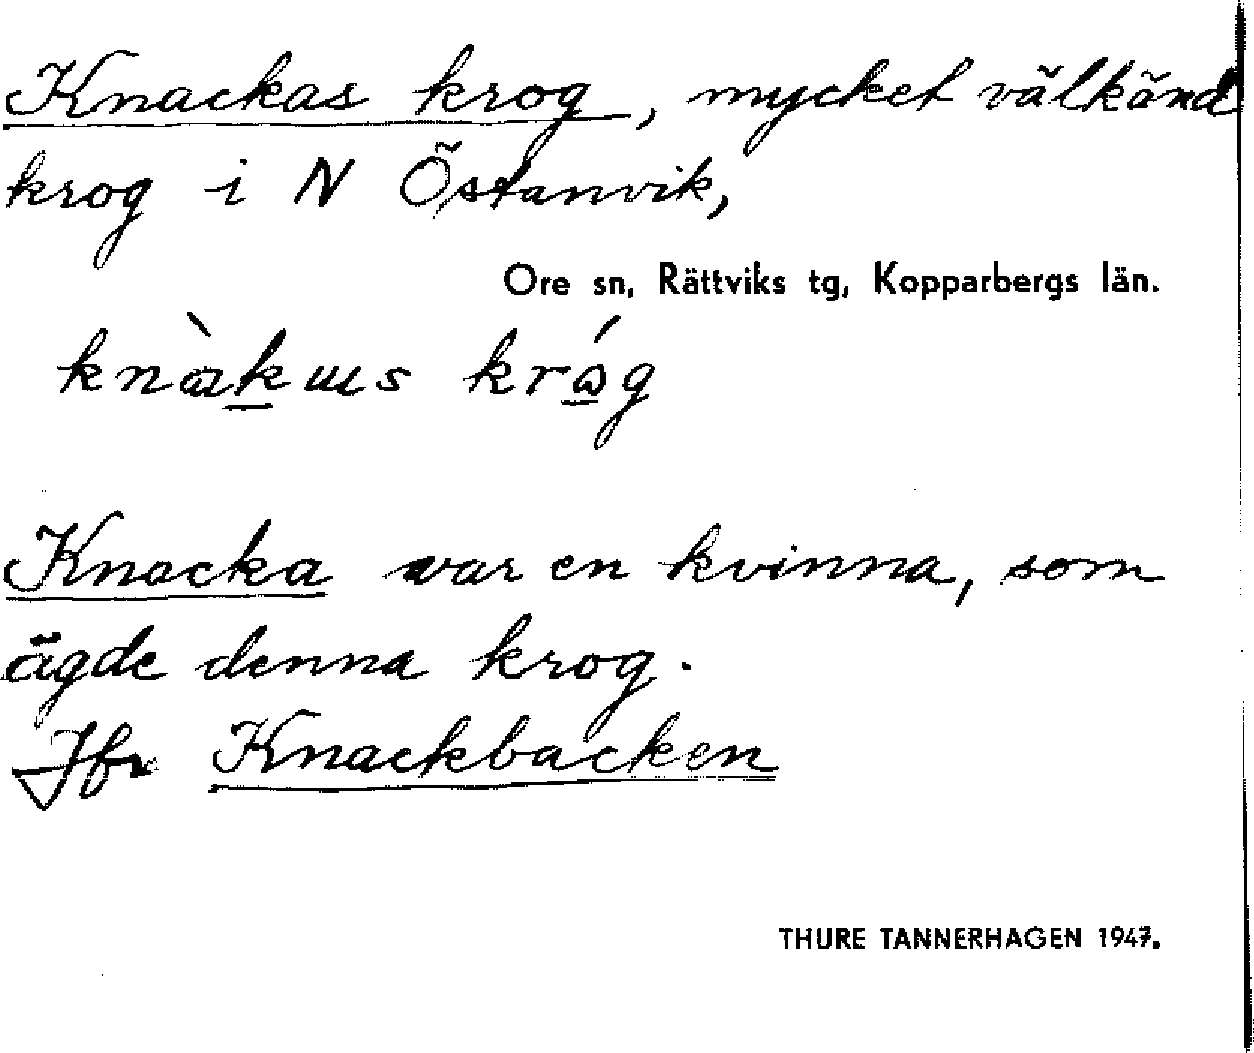 Knackas krog, mycket välkänd
krog i N Östanvik,
Ore sn, Rättviks tg, Kopparbergs län.
Knacka var en kvinna, som
ägde denna krog.
Jfr Knackbacken
THURE TANNERHAGEN 1947.